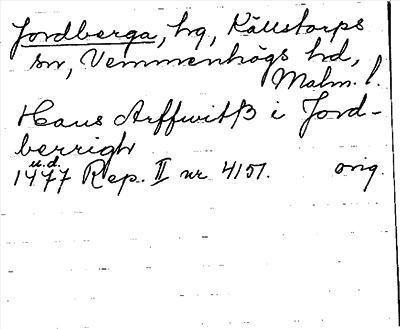 Jordberga, hg, Källstorps
sn, Vemmenhögs hd,
Malm. l.
Hans Arffwitß i Jord-
berrigh
u.d.
1477 Rep. II nr 4151. orig.